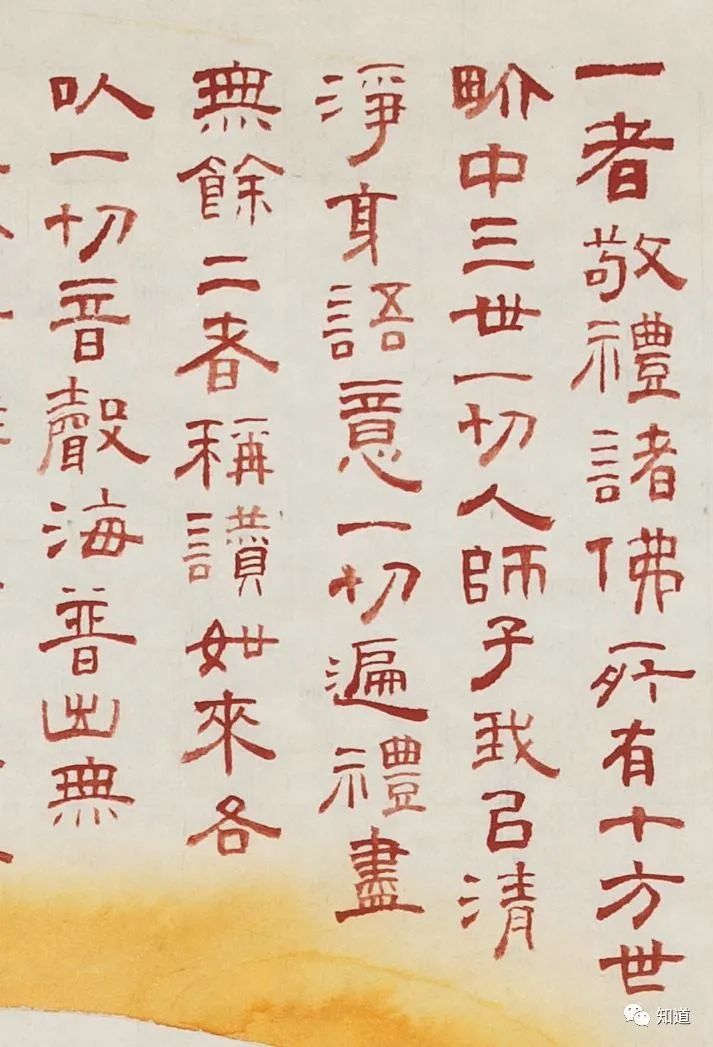 一者敬禮諸佛所有十方世
界中三世一切人師子我㠯清
淨身語意一切遍禮盡
無餘二者稱讚如來各
㕥一切音聲海普出無
知道